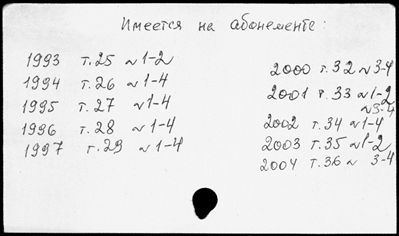 Имеется на абонементе:
1993 т.25 №1-2
1994 т.26 №1-4
1995 т.27 №1-4
1996 т.28 №1-4
1997 т.29 №1-4
2000 т.32 №3-4
2001 т.33 №1-2
№3-4
2002 т.34 №1-4
2003 т.35 №1-2
2004 т.36 № 3-4